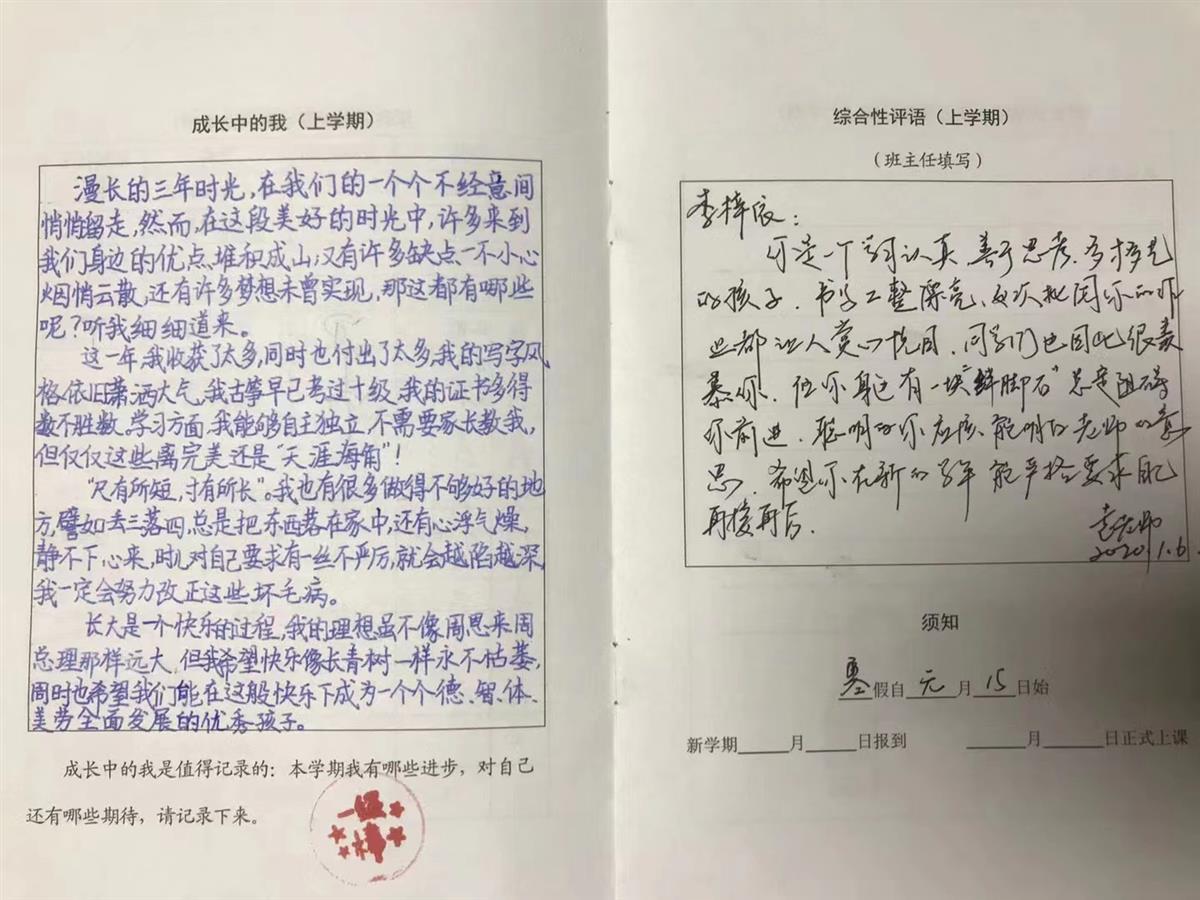 成长中的我（上学期）
漫长的三年时光，在我们的一个个不经意间
悄悄留走，然而，在这段美好的时光中，许多来到
我们身边的优点堆积成山，又有许多缺点一不小心
烟悄云散，还有许多梦想未曾实现，那这都有哪些
呢？听我细细道来。
这一年，我收获了太多，同时也付出了太多，我的写字风
格依旧潇洒大气，我古筝早已考过十级，我的证书多得
数不胜数，学习方面，我能够自主独立，不需要家长教我，
但仅仅这些离完美还是“天涯海角”！
“尺有所短，寸有所长”。我也有很多做得不够好的地
方，譬如丢三落四，总是把东西落在家中，还有心浮气燥，
静不下心来，时儿对自己要求有一丝不严厉，就会越陷越深，
我一定会努力改正这些坏毛病。
长大是一个快乐的过程，我的理想虽不像周恩来周
总理那样远大，但我希望快乐像长青树一样永不枯萎，
同时也希望我们能在这般快乐下成为一个个德、智、体、
美劳全面发展的优秀孩子。
成长中的我是值得记录的：本学期我有哪些进步，对自己
还有哪些期待，请记录下来。
综合性评语（上学期）
（班主任填写）
李梓依：
你是一个学习认真、善于思考、多才多艺
的孩子．书写工整漂亮，每次批阅你的作
业都让人赏心悦目，同学们也因此很羡
慕你．但你身边有一块“绊脚石”总是阻碍
你前进．聪明的你应该能明白老师的意
思．希望你在新的学年能严格要求自己
再接再厉．
老师
2020.1.6.
须知
寒假自元月15日始
新学期 月 日报到 月 日正式上课